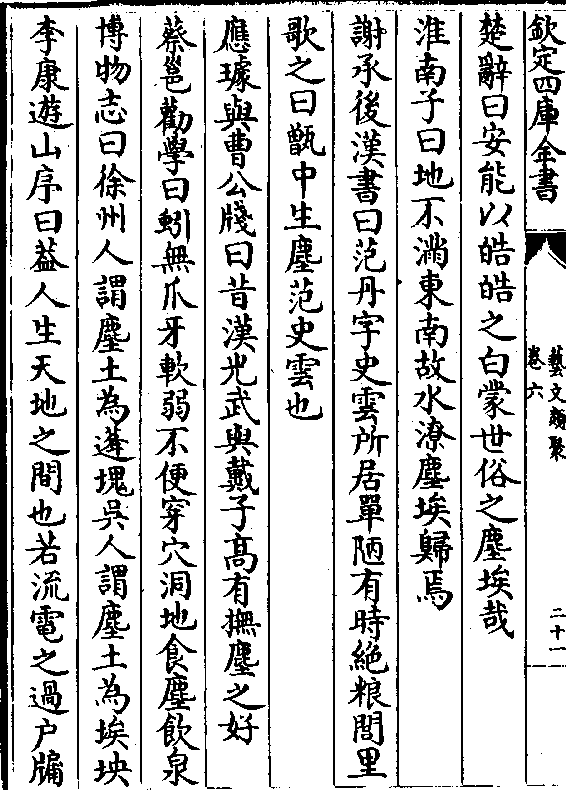 欽定四庫全書
藝文類聚
卷六
二十一
楚辭曰安能以皓皓之白蒙世俗之塵埃哉
淮南子曰地不滿東南故水潦塵埃歸焉
謝承後漢書曰范丹字史雲所居單陋有時絶粮閭里
歌之曰甑中生塵范史雲也
應璩與曹公牋曰昔漢光武與戴子髙有撫塵之好
蔡邕勸學曰蚓無爪牙軟弱不便穿穴洞地食塵飲泉
博物志曰徐州人謂塵土為蓬塊吳人謂塵土為埃坱
李康遊山序曰葢人生天地之間也若流電之過户牖